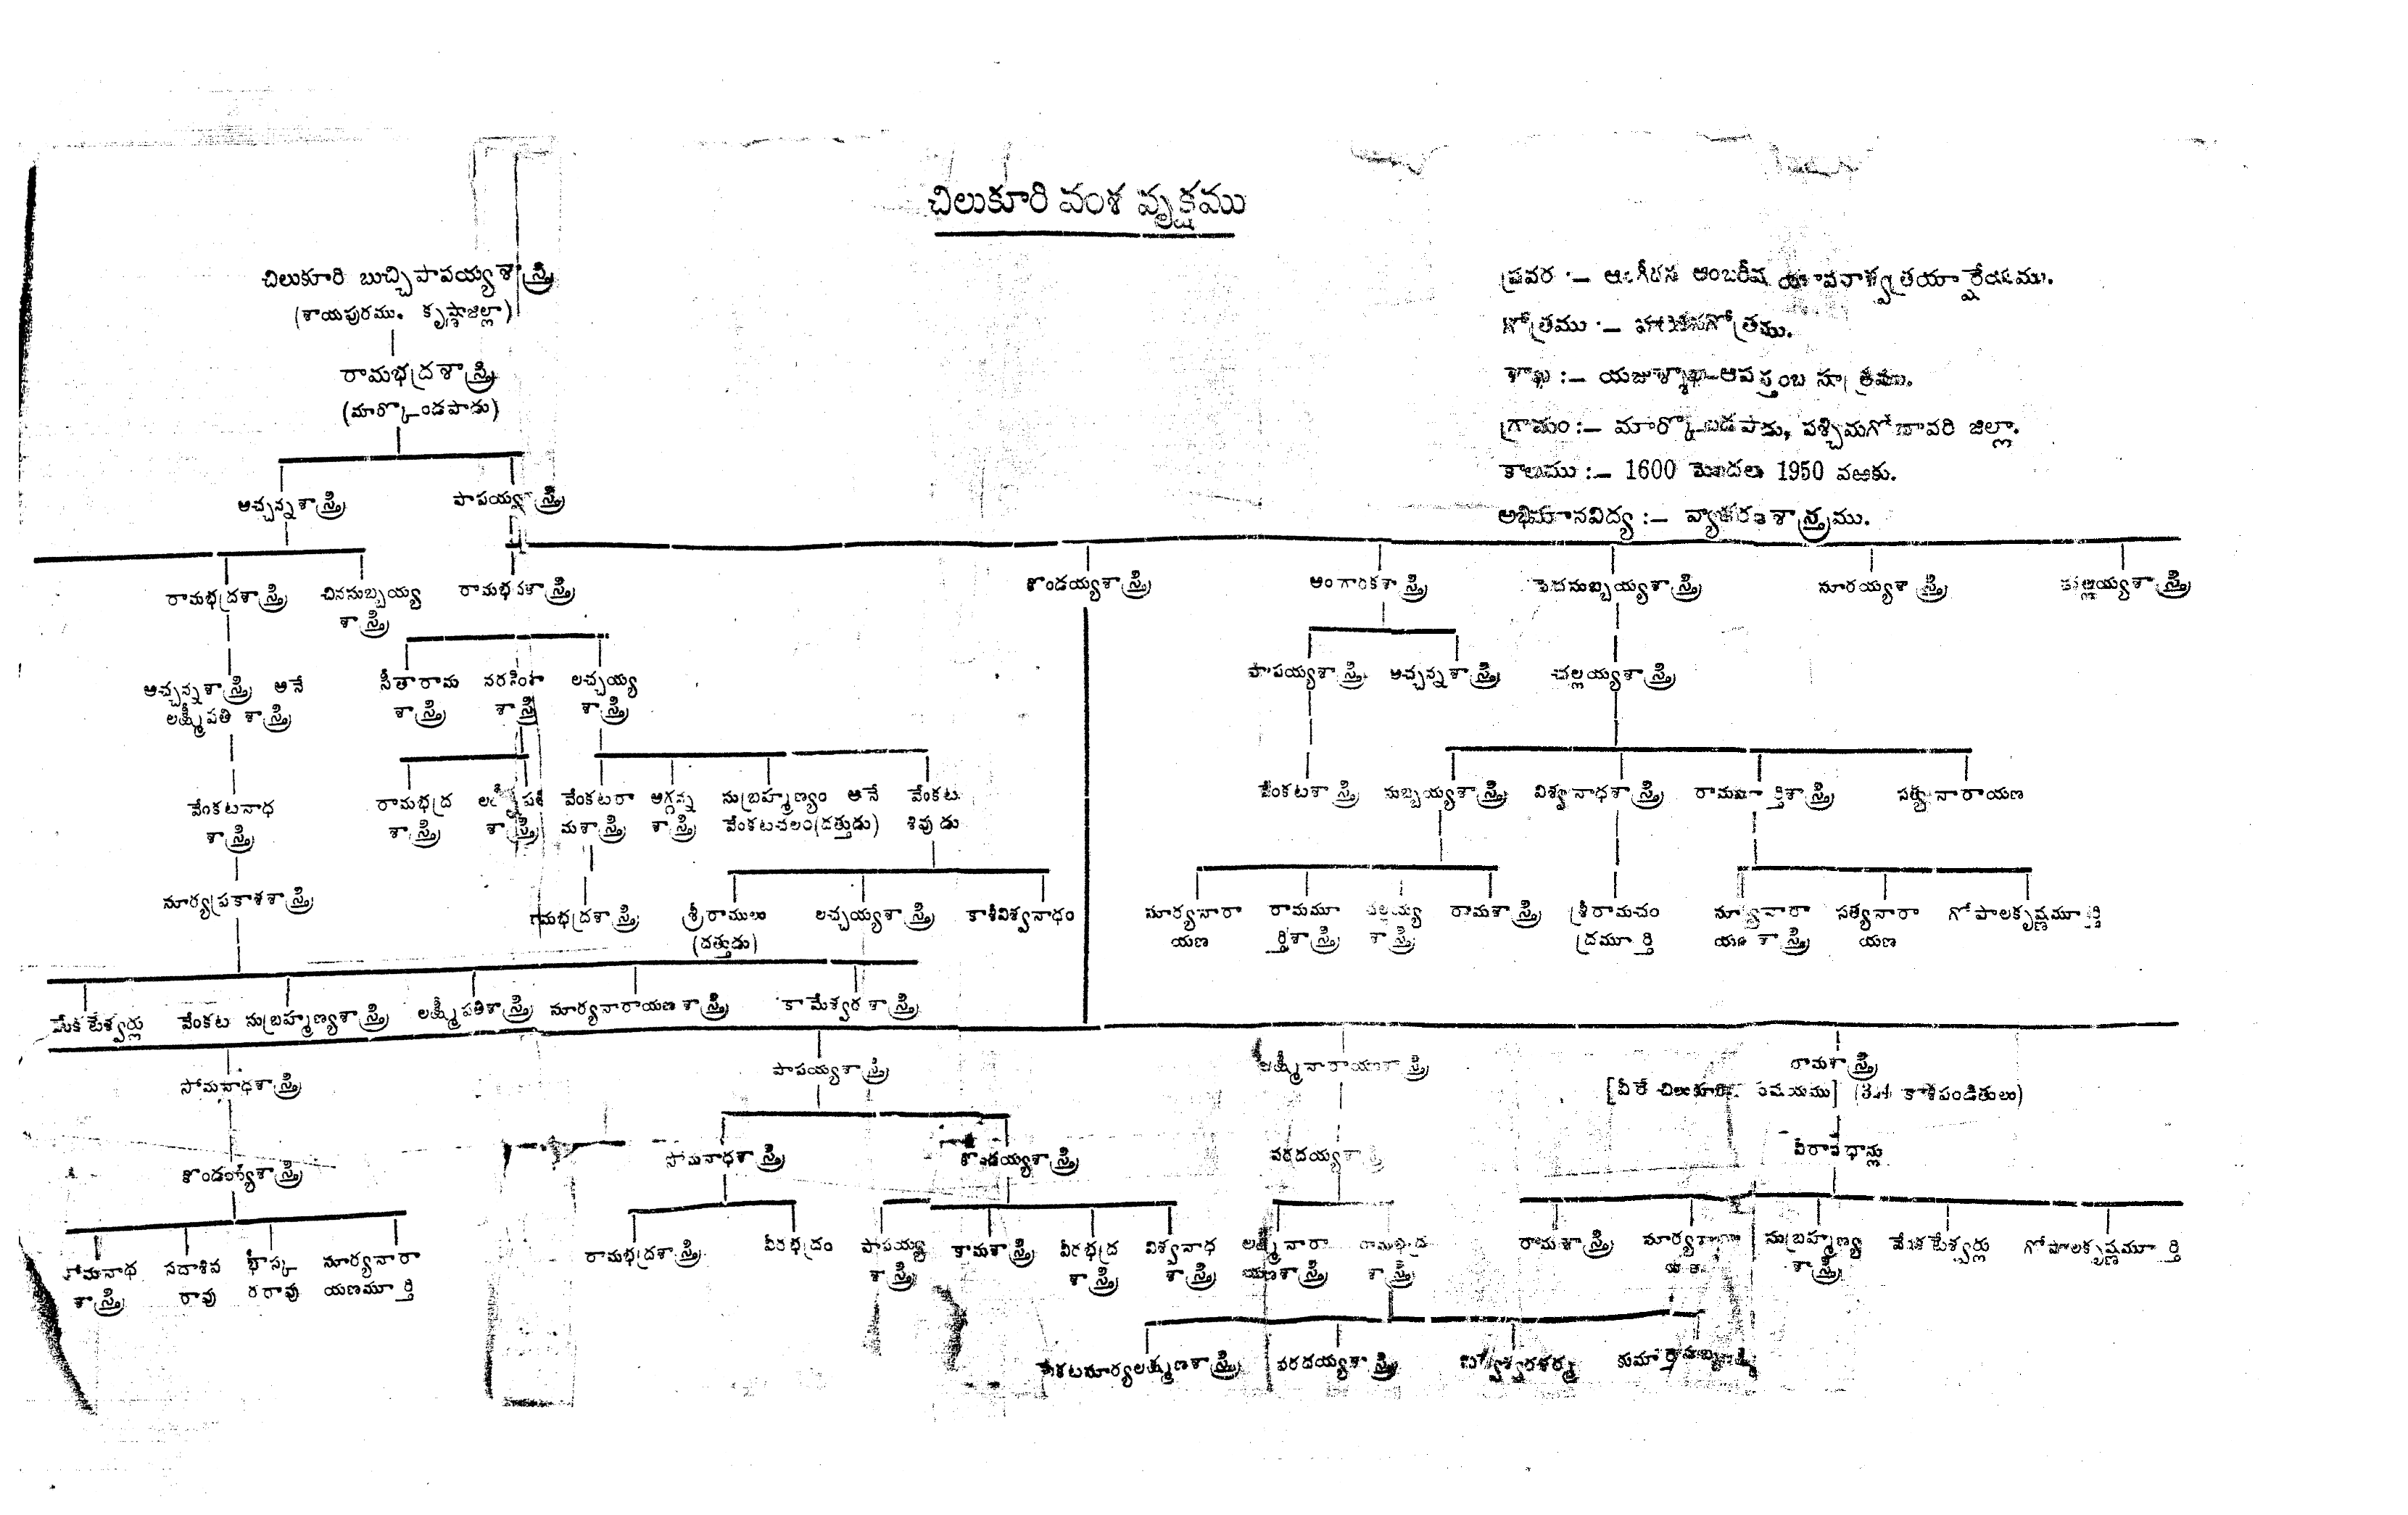 చిలుకూరి వంశ వృక్షము
చిలుకూరి బుచ్చిపాపయ్యశాస్త్రి
(శాయపురము. కృష్ణాజిల్లా)
రామభద్రశాస్త్రి
(మార్కొండపాడు)
ప్రవర :— ఆంగీరస అంబరీష యౌవనాశ్వ త్రయార్షేయము.
గోత్రము :— గోత్రము.
శాఖ :— యజుశ్శాఖ-ఆపస్తంబ సూత్రము.
గ్రామం :— మార్కొండపాడు, పశ్చిమగోదావరి జిల్లా.
కాలము :— 1600 మొదలు 1950 వఱకు.
అభిమానవిద్య :— వ్యాకరణశాస్త్రము.
అచ్చన్నశాస్త్రి పాపయ్యశాస్త్రి
రామభద్రశాస్త్రి చినసుబ్బయ్య రామభద్రశాస్త్రి కొండయ్యశాస్త్రి అంగారకశాస్త్రి పెదసుబ్బయ్యశాస్త్రి సూరయ్యశాస్త్రి చల్లయ్యశాస్త్రి
శాస్త్రి
అచ్చన్నశాస్త్రి అనే సీతారామ నరసింహ లచ్చయ్య పాపయ్యశాస్త్రి అచ్చన్నశాస్త్రి చల్లయ్యశాస్త్రి
లక్ష్మీపతి శాస్త్రి శాస్త్రి శాస్త్రి శాస్త్రి
వేంకటనాధ రామభద్ర లక్ష్మీపతి వేంకటరా అగ్గన్న సుబ్రహ్మణ్యం అనే వేంకట వేంకటశాస్త్రి సుబ్బయ్యశాస్త్రి విశ్వనాధశాస్త్రి రామమూర్తిశాస్త్రి సత్యనారాయణ
శాస్త్రి శాస్త్రి శాస్త్రి మశాస్త్రి శాస్త్రి వేంకటచలం(దత్తుడు) శివుడు
సూర్యప్రకాశశాస్త్రి రామభద్రశాస్త్రి శ్రీరాములు లచ్చయ్యశాస్త్రి కాశీవిశ్వనాధం సూర్యనారా రామమూ చల్లయ్య రామశాస్త్రి శ్రీరామచం సూర్యనారా సత్యనారా గోపాలకృష్ణమూర్తి
(దత్తుడు) యణ ర్తిశాస్త్రి శాస్త్రి ద్రమూర్తి యణ శాస్త్రి యణ
వేంకటేశ్వర్లు వేంకట సుబ్రహ్మణ్యశాస్త్రి లక్ష్మీపతిశాస్త్రి సూర్యనారాయణ శాస్త్రి కామేశ్వర శాస్త్రి
సోమనాధశాస్త్రి పాపయ్యశాస్త్రి లక్ష్మీనారాయణశాస్త్రి రామశాస్త్రి
[వీరే కాశీపండితులు)
కొండయ్యశాస్త్రి సోమనాధశాస్త్రి కొండయ్యశాస్త్రి వరదయ్యశాస్త్రి వీరావధాన్లు
సోమనాథ సదాశివ భాస్క సూర్యనారా రామభద్రశాస్త్రి వీరభద్రం పాపయ్య కామశాస్త్రి వీరభద్ర విశ్వనాధ లక్ష్మీనారా రామభద్ర రామశాస్త్రి సూర్యనారా సుబ్రహ్మణ్య వేంకటేశ్వర్లు గోపాలకృష్ణమూర్తి
శాస్త్రి రావు రరావు యణమూర్తి శాస్త్రి శాస్త్రి శాస్త్రి యణశాస్త్రి శాస్త్రి యణ శాస్త్రి
వేంకటసూర్యలక్ష్మణశాస్త్రి వరదయ్యశాస్త్రి